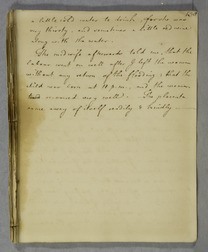 a little cold water to drink if she was
very thirsty, and sometimes a little red wine
along with the water.
The midwife afterwards told me, that the
labour went on well after I left the woman
without any return of the flooding; that the
child was born at 11 p.m., and the woman
recovered very well. The placenta
came away of itself readily &